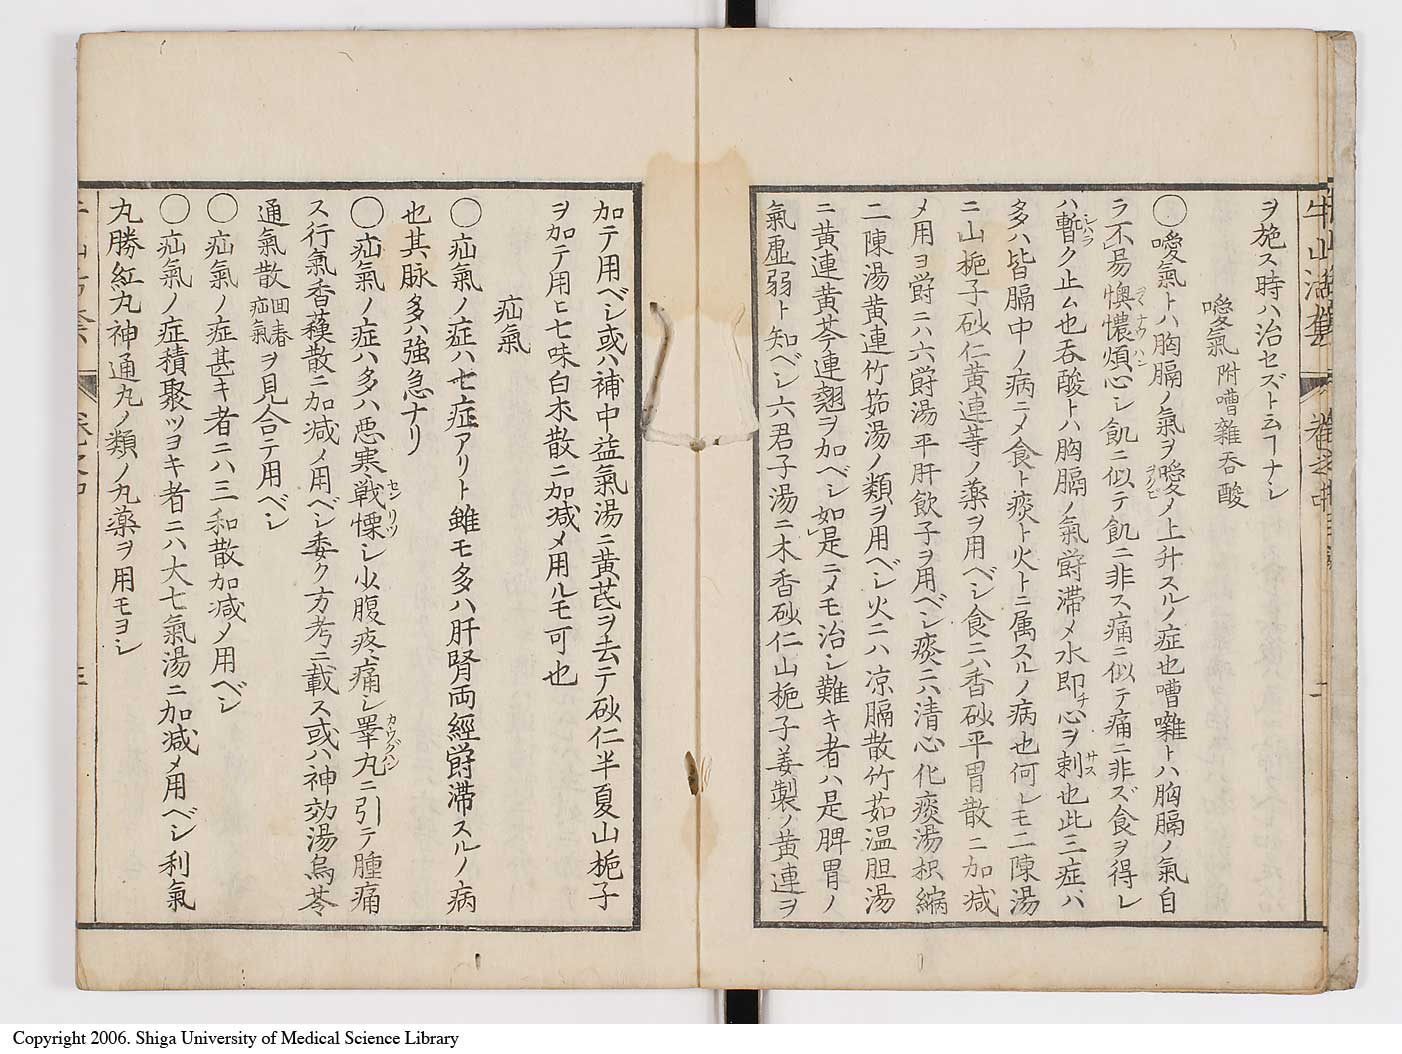 ヲ施ス時ハ治セズト云フナシ
噯氣 附嘈雜吞酸
◯噯氣トハ胸膈ノ氣ヲ噯メ上升スルノ症也嘈囃トハ胸膈ノ氣自
ラ不昜懊憹煩心シノ飢ニ似テ飢ニ非ス痛ニ似テ痛ニ非ズ食ヲ得レ
ハ暫ク止ム也吞酸トハ胸膈ノ氣欝滞メ水即チ心ヲ刺也此三症ハ
多ハ皆膈中ノ病ニメ食ト痰ト火トニ属スルノ病也何レモ二陳湯
ニ山梔子砂仁黄連䓁ノ藥ヲ用ベシ食ニハ香砂平胃散ニ加减
メ用ヨ欝ニハ六欝湯平肝飲子ヲ用ベシ痰ニハ清心化痰湯枳縮
二陳湯黄連竹筎湯ノ類ヲ用ベシ火ニハ凉膈散竹茹温胆湯
ニ黄連黄芩連翹ヲ加ベシ如是ニメモ治シ難キ者ハ是脾胃ノ
氣虛弱ト知ベシ六君子湯ニ木香砂仁山梔子姜製ノ黄連ヲ
加テ用ベシ或ハ補中益氣湯ニ黄芪ヲ去テ砂仁半夏山梔子
ヲ加テ用ヒ七味白朮散ニ加减メ用ルモ可也
疝氣
◯疝氣ノ症ハ七症アリト雖モ多ハ肝腎両經欝滞スルノ病
也其脉多ハ強急ナリ
◯疝氣ノ症ハ多ハ悪寒戦慄シ小腹疼痛シ睪丸ニ引テ腫痛
ス行氣香蘓散ニ加减メ用ベシ委ク方考ニ載ス或ハ神効湯烏苓
通氣散 回春疝氣 ヲ見合テ用ベシ
◯疝氣ノ症甚キ者ニハ三和散加减メ用ベシ
◯疝氣ノ症積聚ツヨキ者ニハ大七氣湯ニ加减メ用ベシ利氣
丸勝紅丸神通丸ノ類ノ丸薬ヲ用モヨシ
Copyright 2006. Shiga University of Medical Science Library